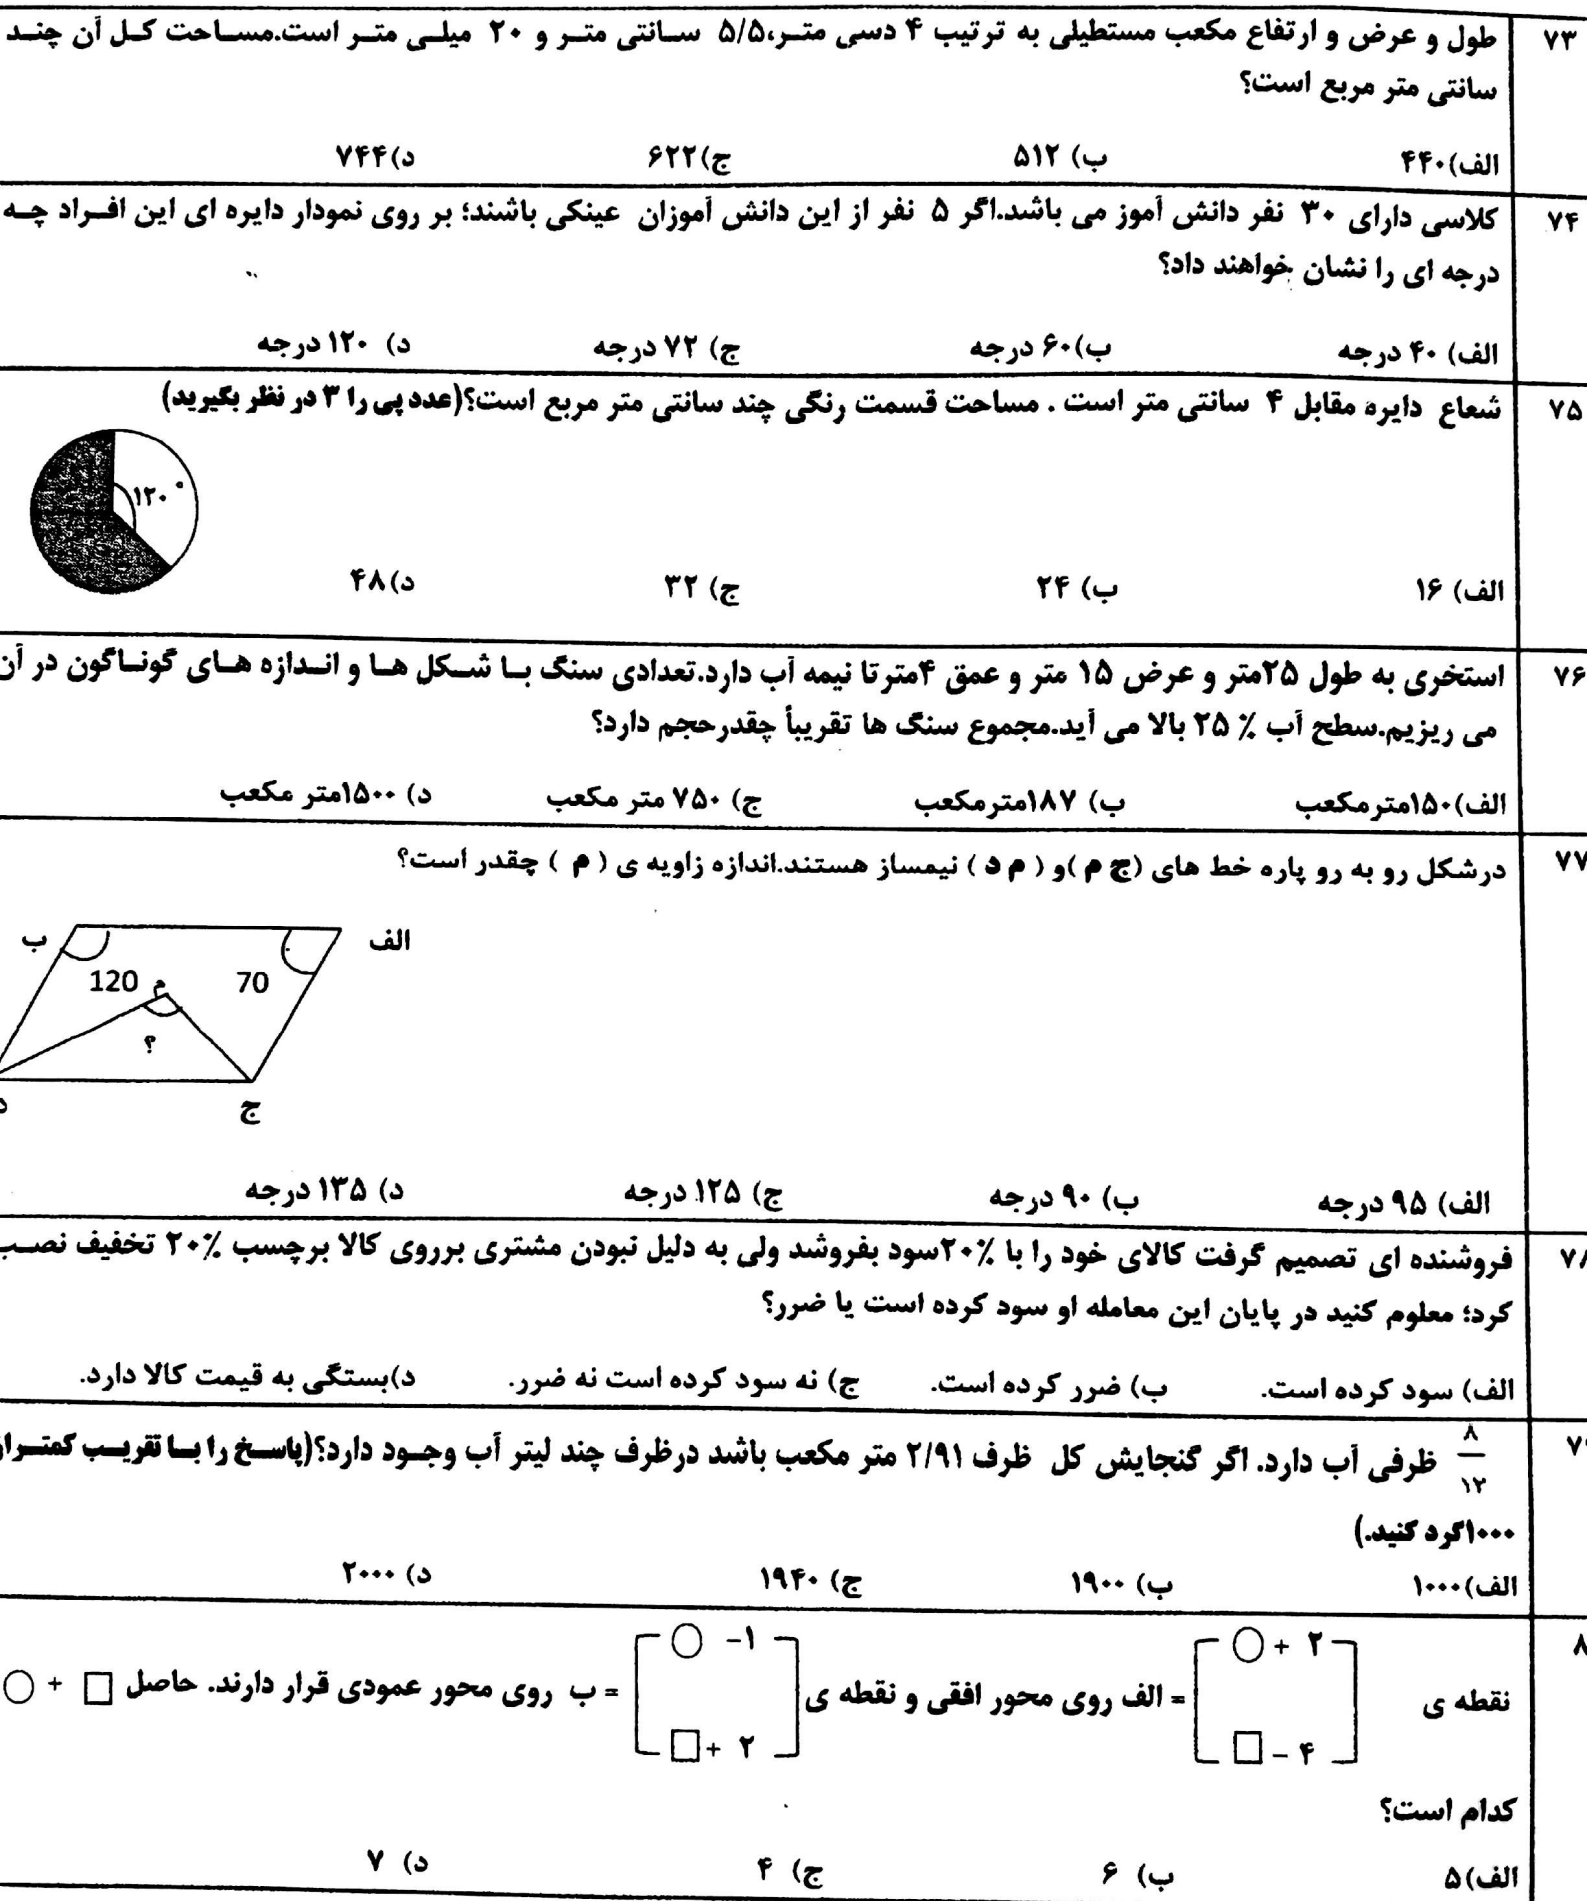 ۷۳ طول و عرض و ارتفاع مکعب مستطیلی به ترتیب ۴ دسی متر،۵/۵ سانتی متر و ۲۰ میلی متر است.مساحت کل آن چند
سانتی متر مربع است؟
الف)۴۴۰ ب) ۵۱۲ ج)۶۲۲ د)۷۴۴
۷۴ کلاسی دارای ۳۰ نفر دانش آموز می باشد.اگر ۵ نفر از این دانش آموزان عینکی باشند؛ بر روی نمودار دایره ای این افراد چه
درجه ای را نشان خواهند داد؟
الف) ۴۰ درجه ب)۶۰ درجه ج) ۷۲ درجه د) ۱۲۰ درجه
۷۵ شعاع دایره مقابل ۴ سانتی متر است . مساحت قسمت رنگی چند سانتی متر مربع است؟(عدد پی را ۳ در نظر بگیرید)
۱۲۰ °
الف) ۱۶ ب) ۲۴ ج) ۳۲ د)۴۸
۷۶ استخری به طول ۲۵متر و عرض ۱۵ متر و عمق ۴متر تا نیمه آب دارد.تعدادی سنگ با شکل ها و اندازه های گوناگون در آن
می ریزیم.سطح آب ٪ ۲۵ بالا می آید.مجموع سنگ ها تقریباً چقدرحجم دارد؟
الف)۱۵۰مترمکعب ب) ۱۸۷مترمکعب ج) ۷۵۰ متر مکعب د) ۱۵۰۰متر مکعب
۷۷ درشکل رو به رو پاره خط های (ج م )و ( م د ) نیمساز هستند.اندازه زاویه ی ( م ) چقدر است؟
الف ب
70 م 120
؟
ج د
الف) ۹۵ درجه ب) ۹۰ درجه ج) ۱۲۵ درجه د) ۱۳۵ درجه
فروشنده ای تصمیم گرفت کالای خود را با ٪۲۰سود بفروشد ولی به دلیل نبودن مشتری برروی کالا برچسب ٪۲۰ تخفیف نصب
کرد؛ معلوم کنید در پایان این معامله او سود کرده است یا ضرر؟
الف) سود کرده است. ب) ضرر کرده است. ج) نه سود کرده است نه ضرر. د)بستگی به قیمت کالا دارد.
۸/۱۲ ظرفی آب دارد. اگر گنجایش کل ظرف ۲/۹۱ متر مکعب باشد درظرف چند لیتر آب وجود دارد؟(پاسخ را با تقریب کمتر از
۱۰۰۰گرد کنید.)
الف)۱۰۰۰ ب) ۱۹۰۰ ج) ۱۹۴۰ د) ۲۰۰۰
○ + ۲ ○ -۱
نقطه ی = الف روی محور افقی و نقطه ی = ب روی محور عمودی قرار دارند. حاصل □ + ○
□ - ۴ □ + ۲
کدام است؟
الف)۵ ب) ۶ ج) ۴ د) ۷